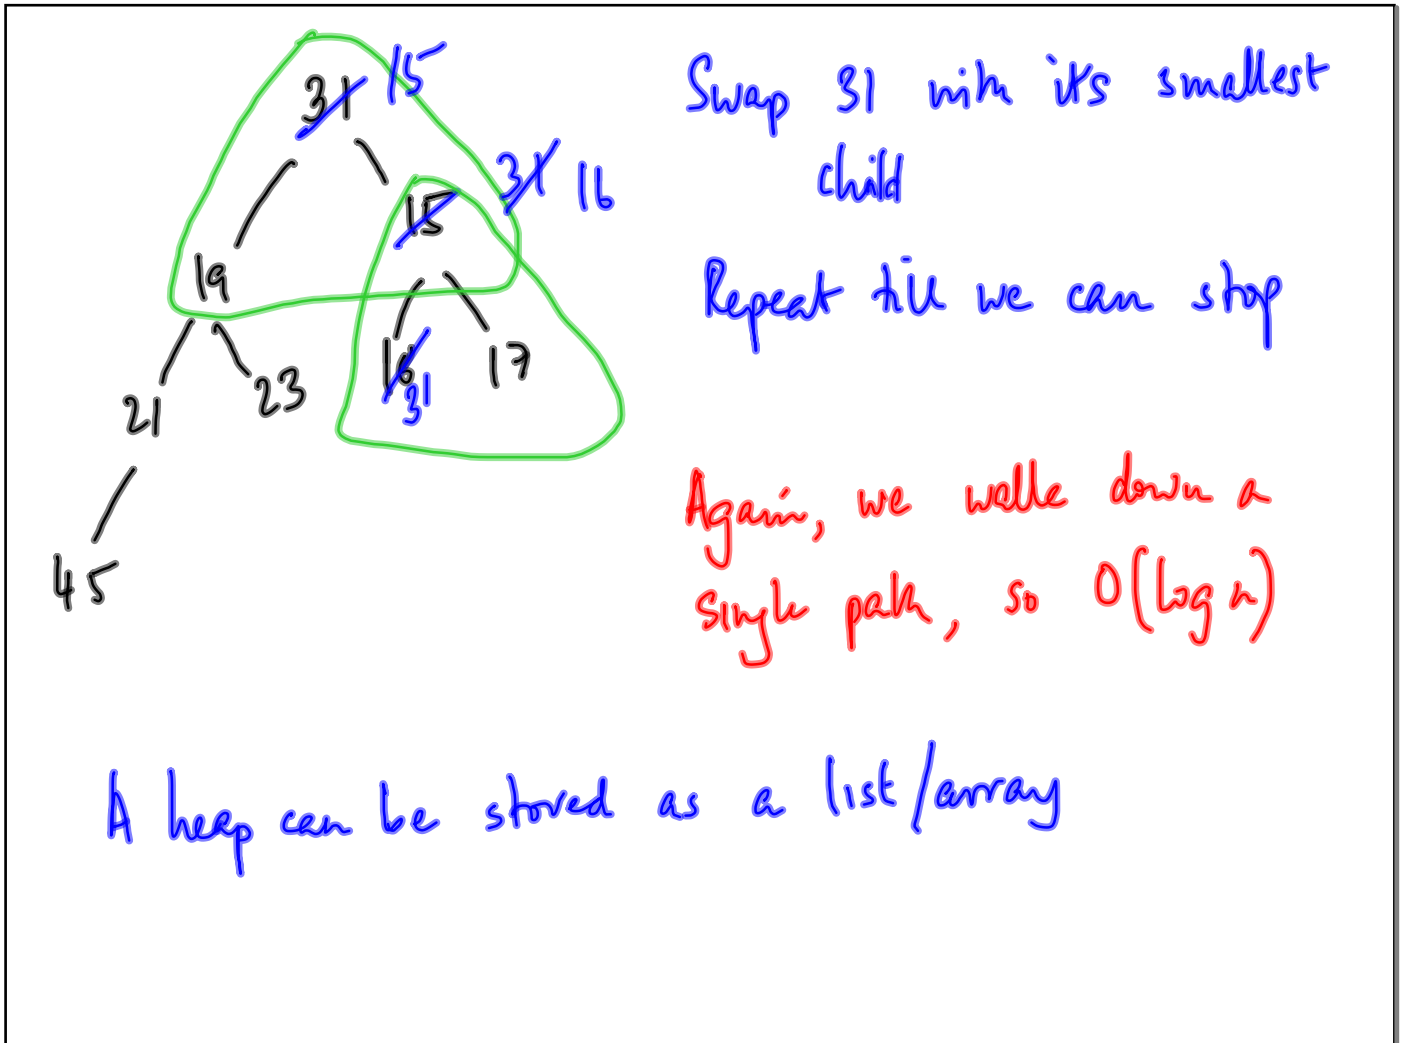 31 15
15 31 16
19
16 31 17
21 23
45
Swap 31 with its smallest
child
Repeat till we can stop
Again, we walk down a
single path, so O(log n)
A heap can be stored as a list/array